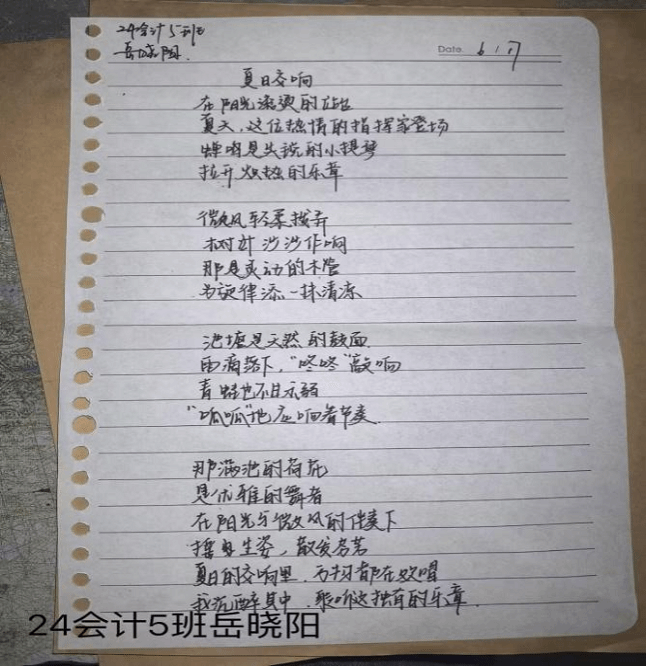 24会计5班
岳晓阳.
Date. 6 / 17
夏日交响
在阳光滚烫的
夏天,这位热情的指挥家登场
蝉鸣是尖锐的小提琴
拉开炽热的乐章
微风轻柔拨弄
树叶沙沙作响
那是灵动的木管
为旋律添一抹清凉
池塘是天然的鼓面
雨滴落下,“咚咚”敲响
青蛙也不甘示弱
“呱呱”地应响着节奏.
那满池的荷花
是优雅的舞者
在阳光与微风的伴奏下
摇曳生姿,散发芬芳
夏日的交响里,万物都在欢唱
我沉醉其中,聆听这独有的乐章.
24会计5班岳晓阳